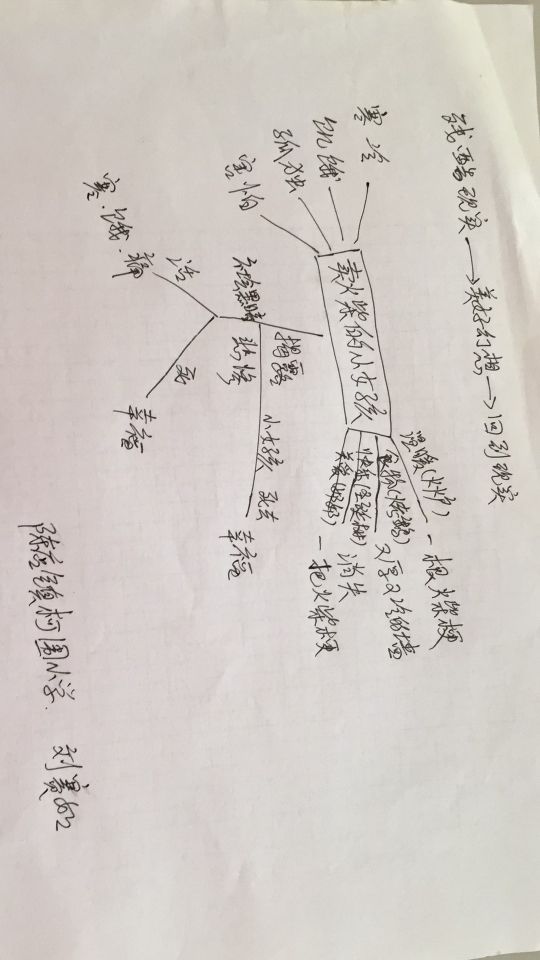 残酷现实→美好幻想→回到现实
寒冷
饥饿
孤独
害怕
卖火柴的小女孩
温暖(火炉) 一根火柴梗
食物(烤鹅) 又厚又冷的墙
快乐(圣诞树) 消失
关爱(奶奶) 一把火柴梗
揭露
社会黑暗
悲惨
小女孩 死去
幸福
活
寒.饿.痛
死
幸福
陈店镇柯围小学